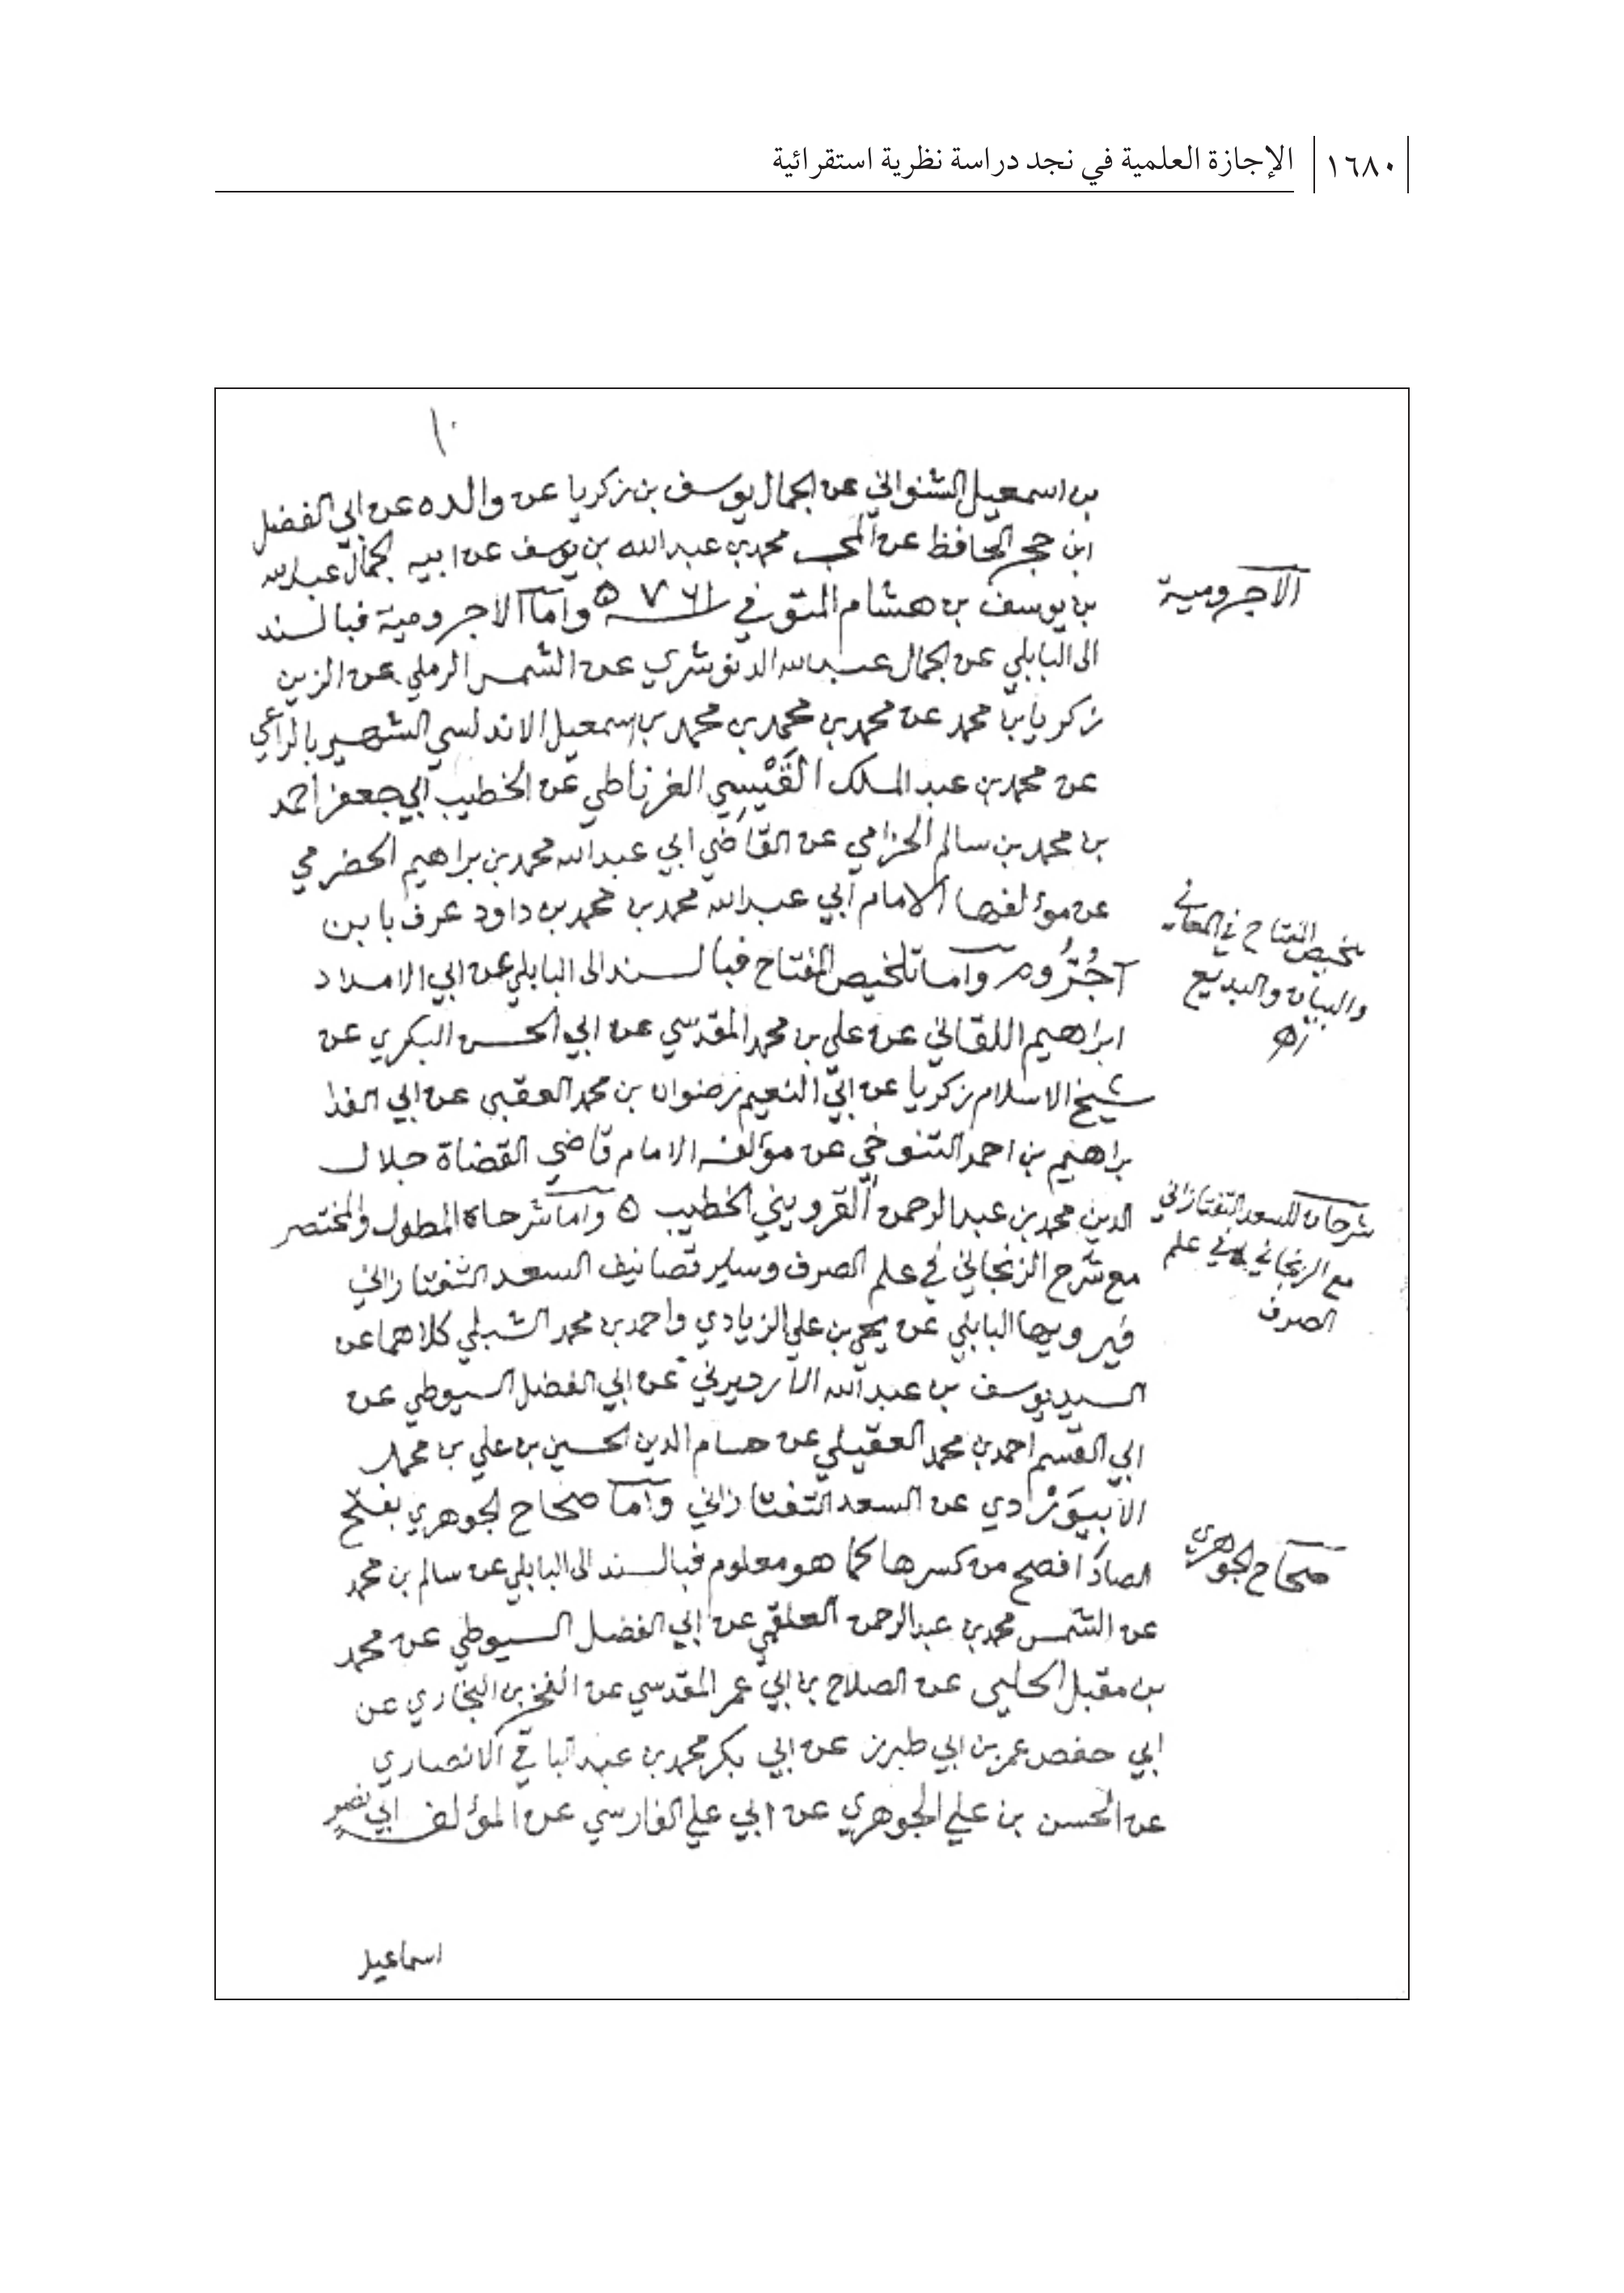 ١٦٨٠ الإجازة العلمية في نجد دراسة نظرية استقرائية
١٠
بن اسمعيل الشنواني عن الجمال يوسف بن زكريا عن والده عن ابي الفضل
ابن حجر الحافظ عن المحب محمد بن عبد الله بن يوسف عن ابيه الجمال عبد الله
بن يوسف بن هشام المتوفي واما الاجرومية فبالسند
الاجرومية
الى البابلي عن الجمال عبد الله الدنوشري عن الشمس الرملي عن الزين
زكريا بن محمد عن محمد بن محمد بن محمد بن اسمعيل الاندلسي الشهير بالراعي
عن محمد بن عبد الملك القَيْسِي الغرناطي عن الخطيب ابي جعفر احمد
بن محمد بن سالم الحزامي عن القاضي ابي عبد الله محمد بن براهيم الحضرمي
عن مؤلفها الامام ابي عبد الله محمد بن محمد بن داود عرف بابن
آجُرُّوم واما تلخيص المفتاح فبالسند الى البابلي عن ابي الامداد
تلخيص المفتاح في المعاني
والبيان والبديع
ابراهيم اللقاني عن علي بن محمد المقدسي عن ابي الحسن البكري عن
شيخ الاسلام زكريا عن ابي النعيم رضوان بن محمد العقبي عن ابي الفدا
براهيم بن احمد التنوخي عن مؤلفه الامام قاضي القضاة جلال
الدين محمد بن عبد الرحمن القرويني الخطيب ٥ واما شرحاه المطول والمختصر
شرحان للسعد التفتازاني
مع الزنجاني في علم
الصرف
مع شرح الزنجاني في علم الصرف وساير تصانيف السعد التفتازاني
فيرويها البابلي عن يحيى بن علي الزيادي واحمد بن محمد الشبلي كلاهما عن
السيد يوسف بن عبد الله عن ابي الفضل السيوطي عن
ابي القسم احمد بن محمد العقيلي عن حسام الدين الحسين بن علي بن محمد
الأبيوَرْدي عن السعد التفتازاني واما صحاح الجوهري بفتح
الصاد افصح من كسرها كما هو معلوم فبالسند الى البابلي عن سالم بن محمد
صحاح الجوهري
عن الشمس محمد بن عبد الرحمن العلقمي عن ابي الفضل السيوطي عن محمد
بن مقبل الحلبي عن الصلاح بن ابي عمر المقدسي عن الفخر بن البخاري عن
ابي حفص عمر بن ابي طبرز عن ابي بكر محمد بن عبد الباقي الانصاري
عن الحسن بن علي الجوهري عن ابي علي الفارسي عن المؤلف ابي نصر
اسماعيل